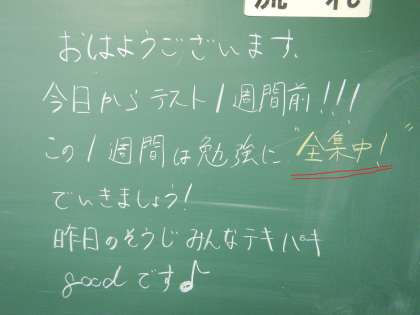 流れ
おはようございます。
今日からテスト1週間前!!!
この1週間は勉強に"全集中!"
でいきましょう!
昨日のそうじみんなテキパキ
goodです♪